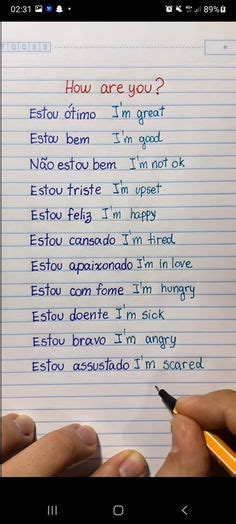 02:31
89%
How are you?
Estou ótimo I'm great
Estou bem I'm good
Não estou bem I'm not ok
Estou triste I'm upset
Estou feliz I'm happy
Estou cansado I'm tired
Estou apaixonado I'm in love
Estou com fome I'm hungry
Estou doente I'm sick
Estou bravo I'm angry
Estou assustado I'm scared